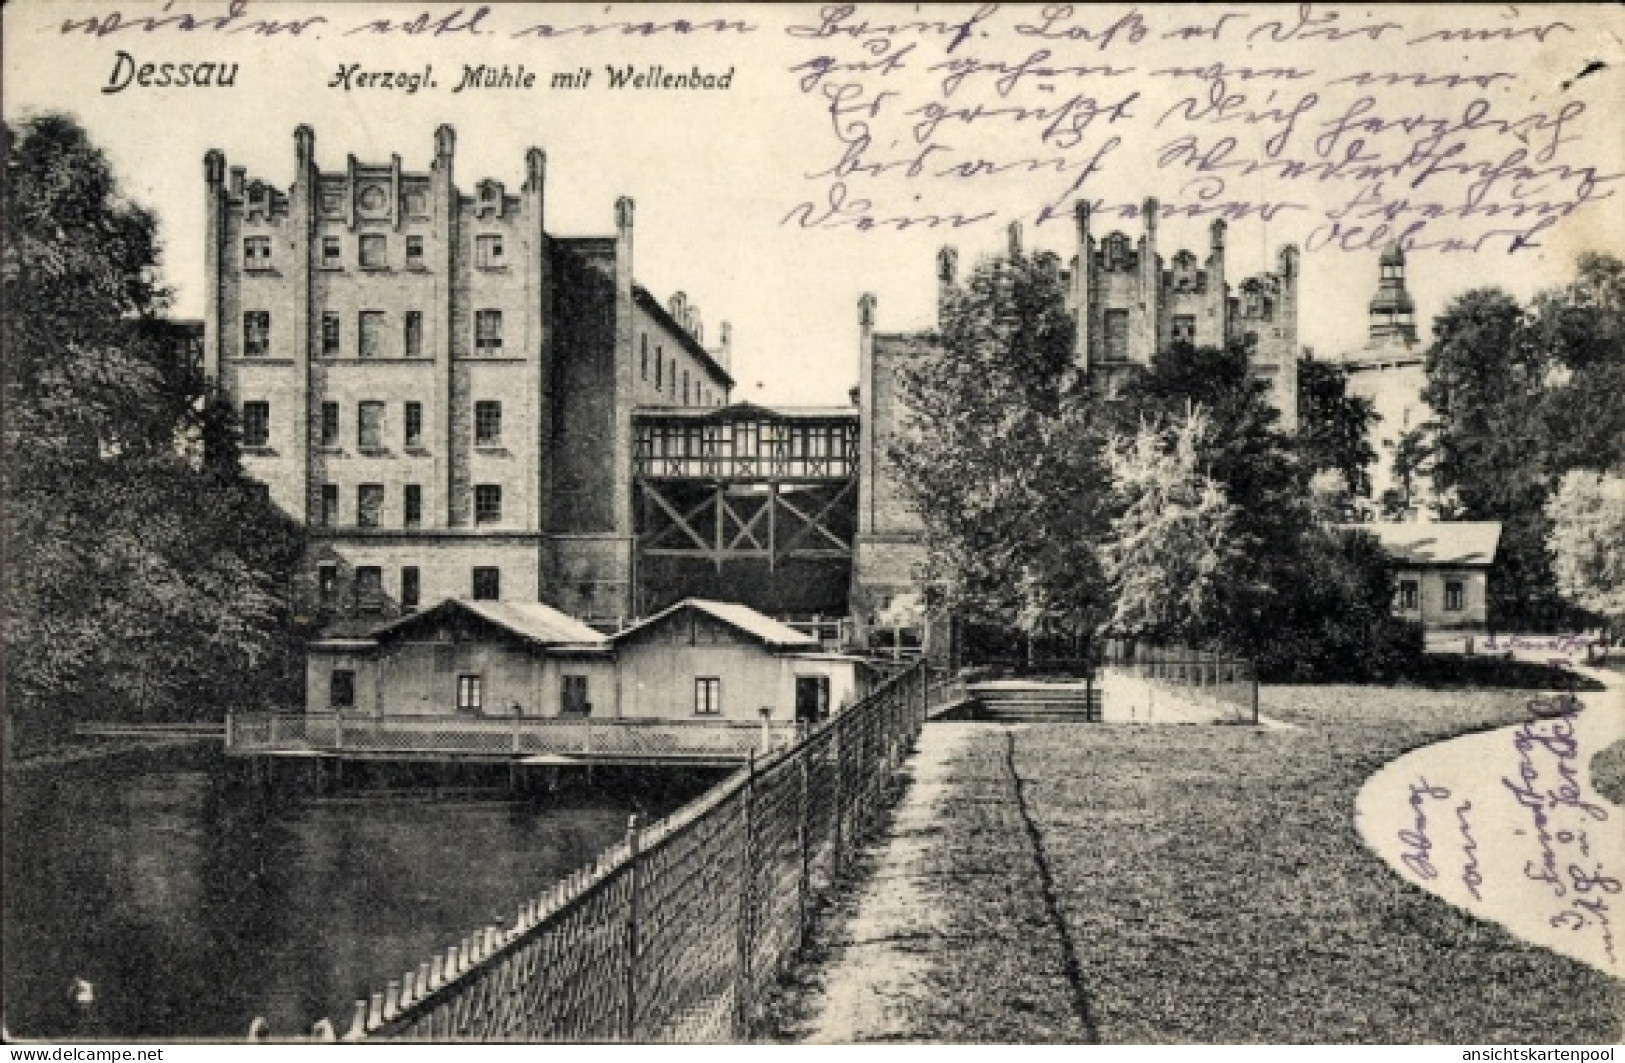 wieder evtl. einen Brief. Laß es Dir nur
gut gehen wie mir.
Es grüßt Dich herzlich
bis auf Wiedersehen
Dein treuer Freund
Albert
Dessau Herzogl. Mühle mit Wellenbad
delcampe.net
ansichtskartenpool